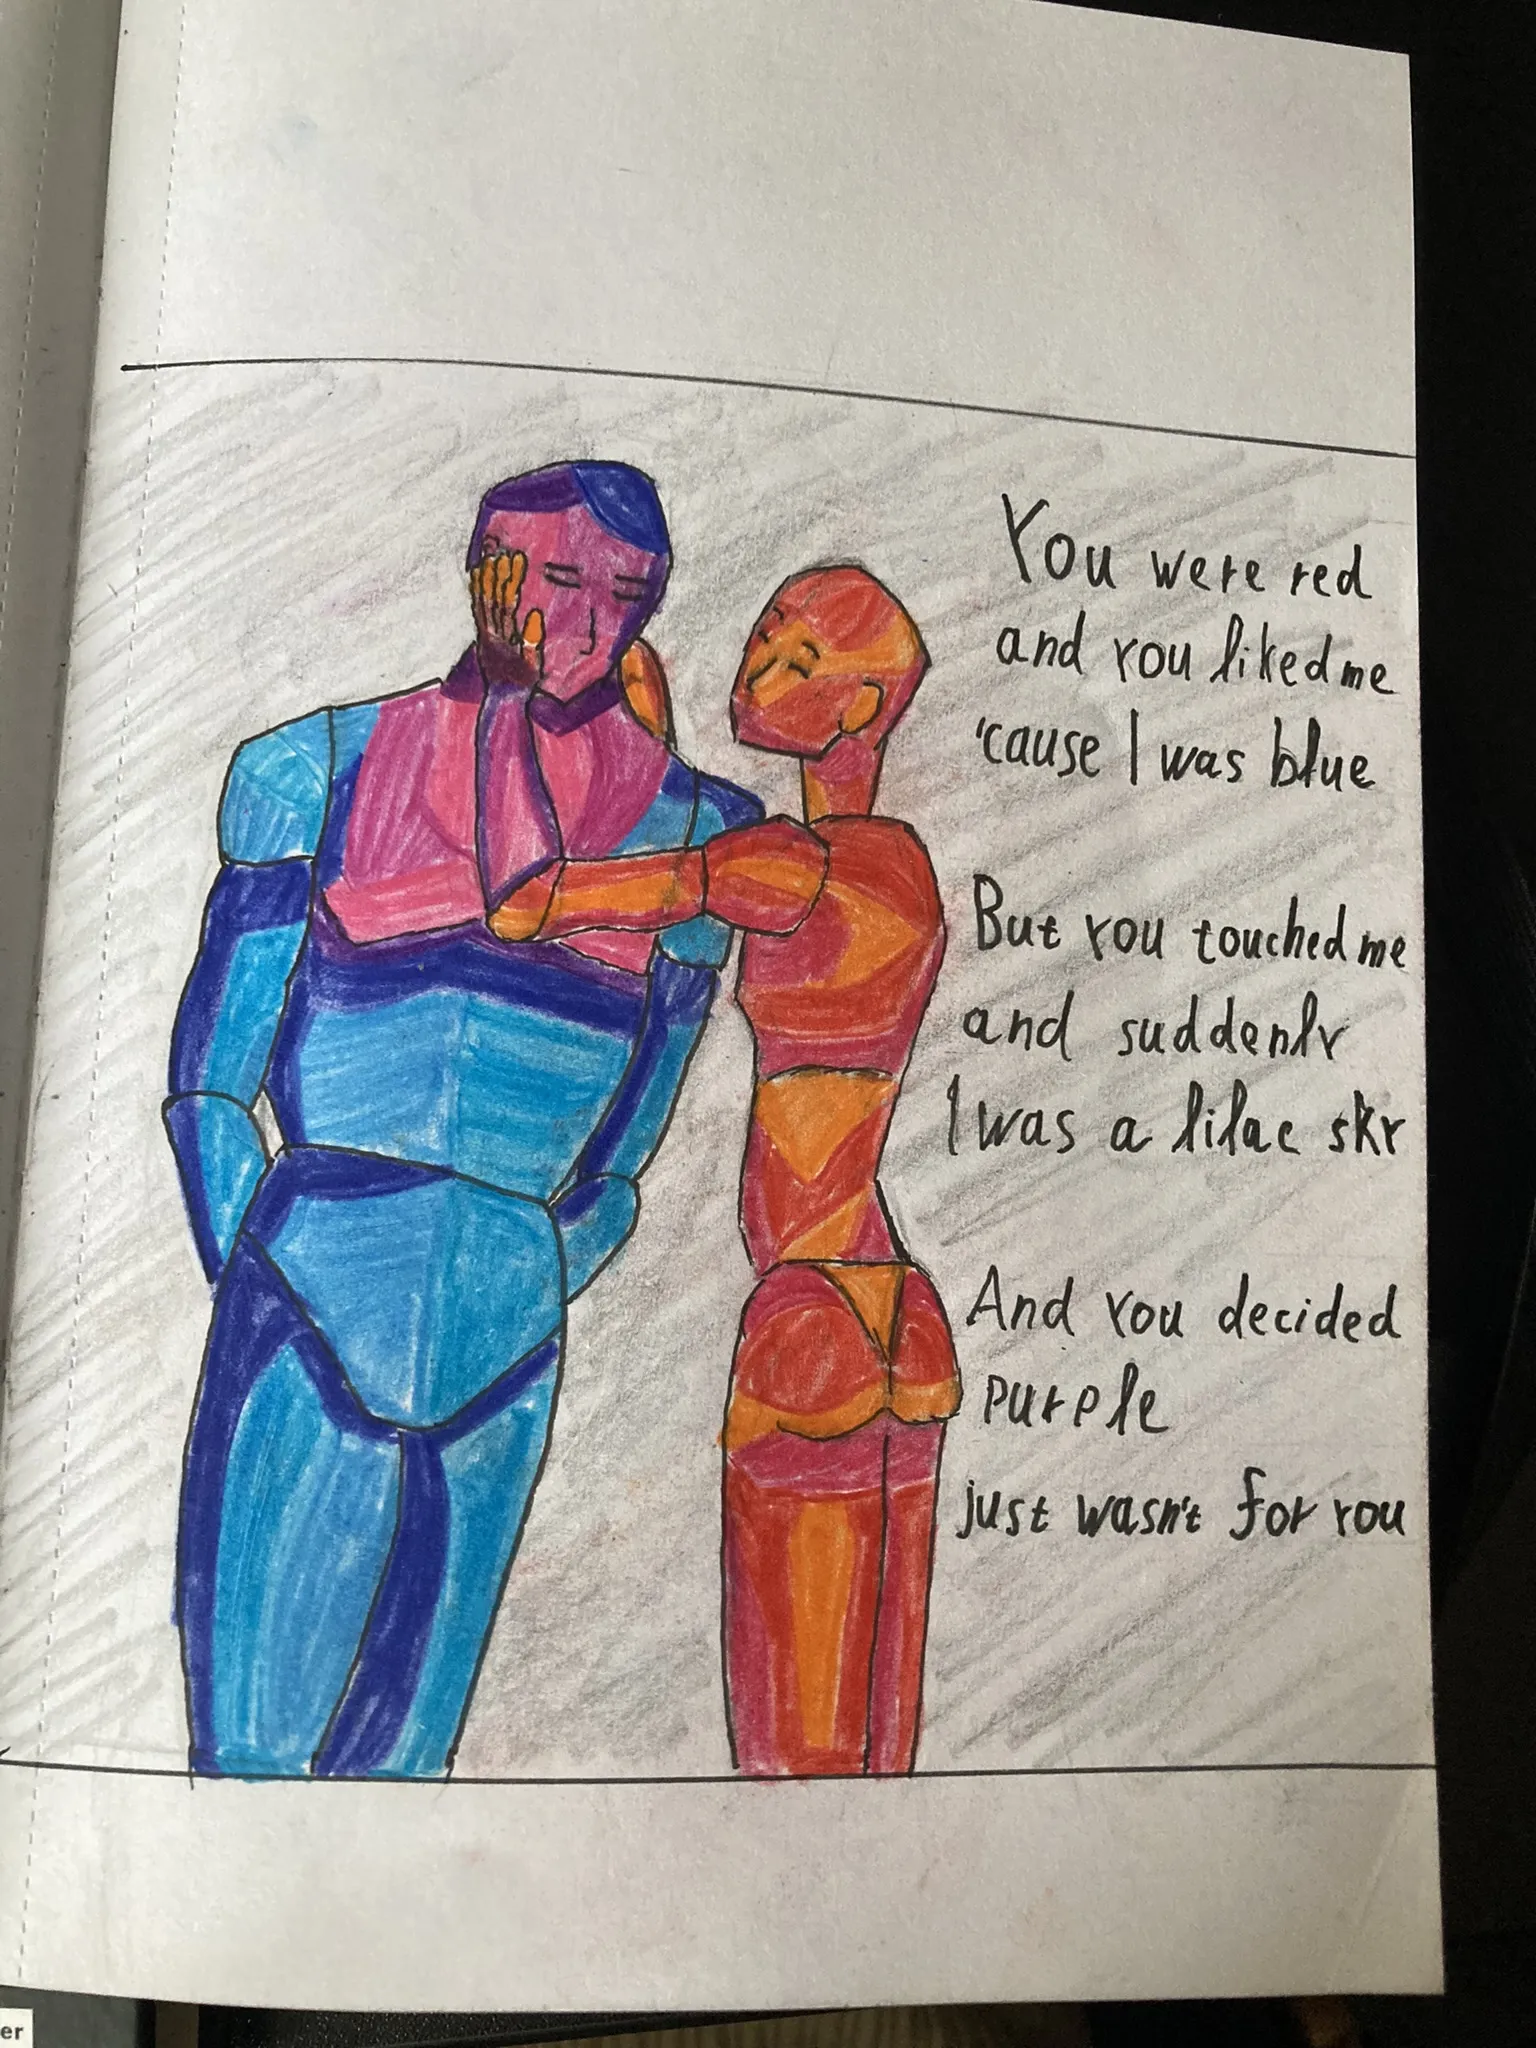 You were red
and you liked me
'cause I was blue
But you touched me
and suddenly
I was a lilac sky
And you decided
purple
just wasn't for you
er